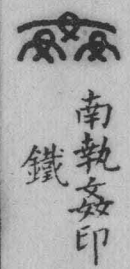 南執姦印
鐵